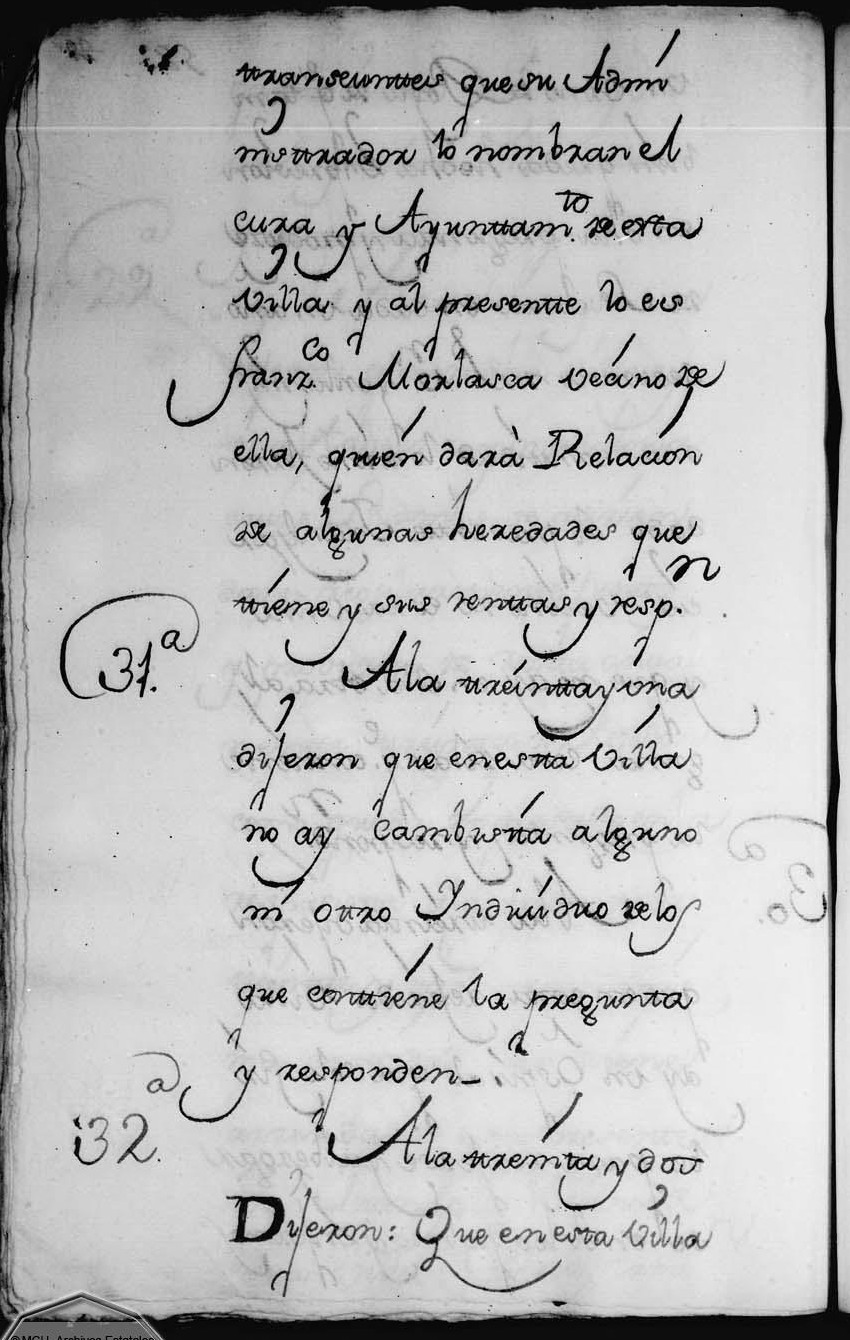 ttranseunttes que su Admi
nisttrador lo nombran el
cura y Ayunttam.to de esta
villa y al presentte lo es
Franz.co Morlasca vecino de
ella, quién dará Relación
de algunas heredades que
ttiene y sus renttas y resp.n
31.a
A la ttreintta y una
dijeron que en estta villa
no ay Cambistta alguno
ni ottro Individuo de los
que conttiene la pregunta
y responden
32.a
A la ttreinta y dos
Dijeron: Que en esta villa